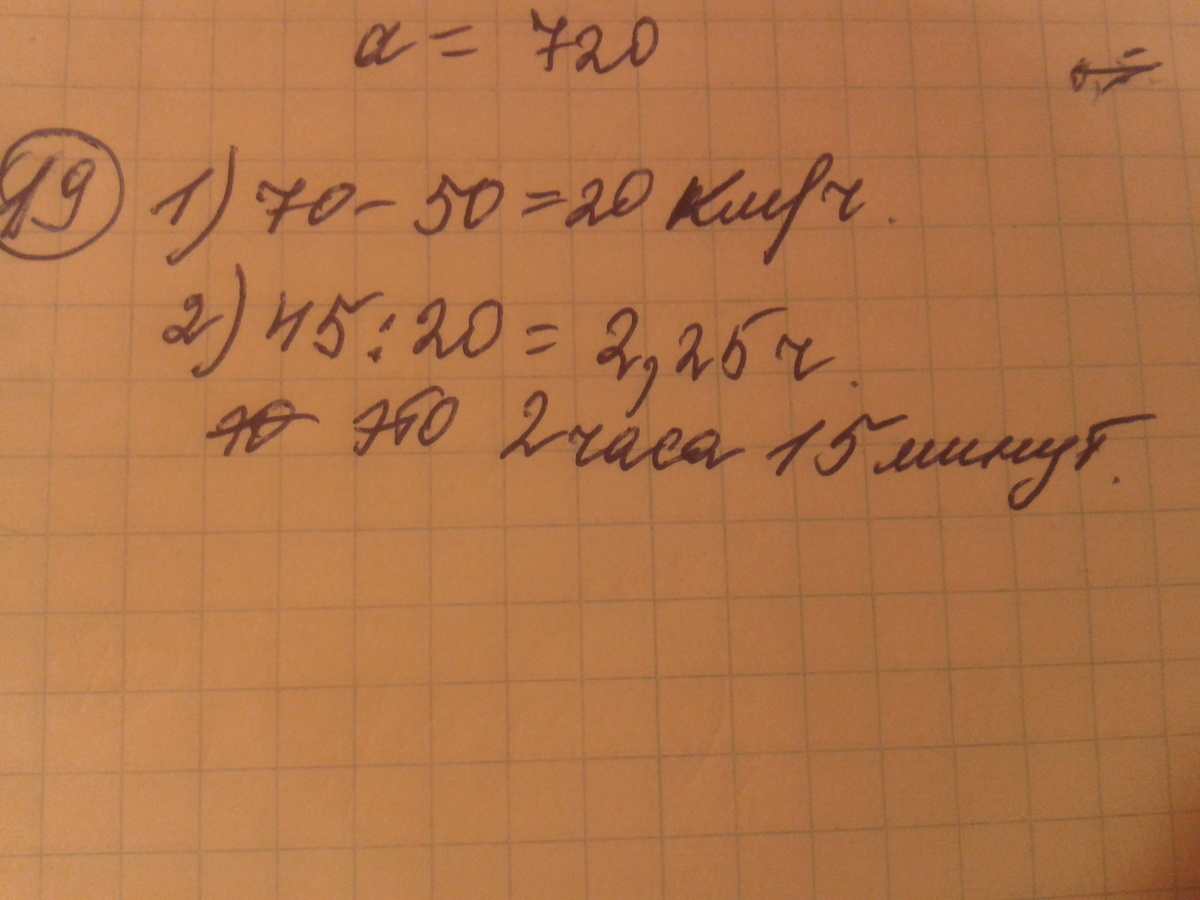 a = 720
19 1) 70 - 50 = 20 км/ч.
2) 45 : 20 = 2,25 ч.
это 2 часа 15 минут.